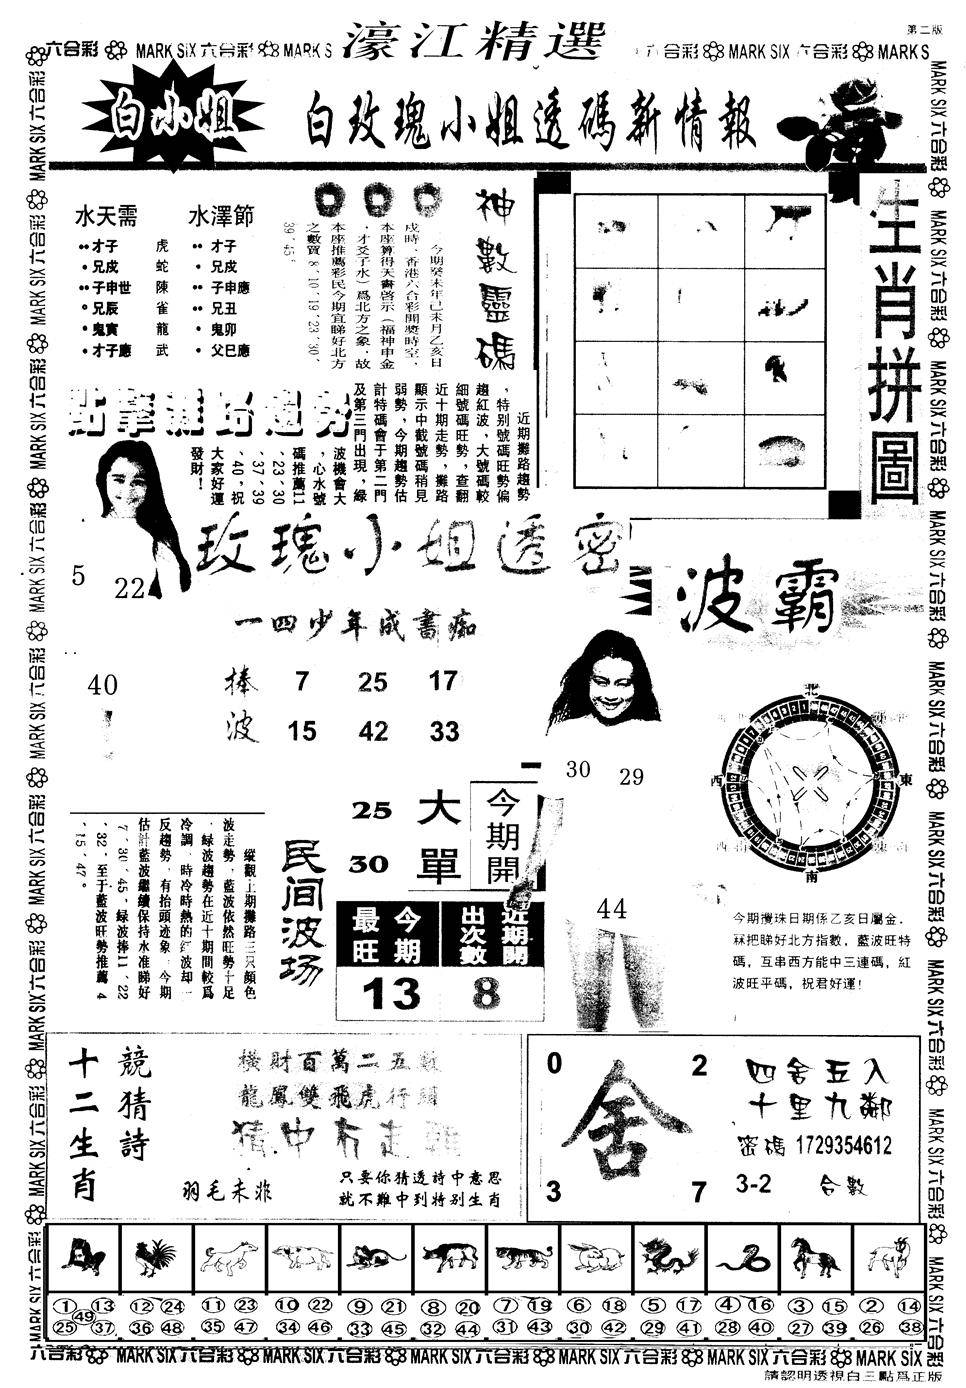 第二版
濠江精選
六合彩 MARK SIX 六合彩 MARK S
六合彩 MARK SIX 六合彩 MARK S
白小姐
白玫瑰小姐透碼新情報
水天需
才子 虎
兄戌 蛇
子申世 陳
兄辰 雀
鬼寅 龍
才子應 武
水澤節
才子
兄戌
子申應
兄丑
鬼卯
父巳應
神數靈碼
今期癸未年己未月乙亥日
戌時、香港六合彩開獎時空，
本座算得天書啓示（福神申金
，才爻子水）爲北方之象，故
本座推薦彩民今期宜睇好北方
之數買8、10、19、23、30、
39、45。
生肖拼圖
點擊攤路趨勢
近期攤路趨勢
，特別號碼旺勢偏
趨紅波，大號碼較
細號碼旺勢，查翻
近十期走勢，攤路
顯示中截號碼稍見
弱勢，今期趨勢估
計特碼會于第二門
及第三門出現，綠
波機會大
，心水號
碼推薦11
、23、30
、37、39
、40，祝
大家好運
發財！
玫瑰小姐透密
5
22
一四少年成書痴
40
捧波
7 25 17
15 42 33
波霸
30
29
44
北
西
東
南
今期攪珠日期係乙亥日屬金，
冧把睇好北方指數，藍波旺特
碼，互串西方能中三連碼，紅
波旺平碼，祝君好運！
縱觀上期攤路三只顏色
波走勢，藍波依然旺勢十足
，綠波趨勢在近十期間較爲
冷調，時冷時熱的紅波却一
反趨勢，有抬頭迹象，今期
估計藍波繼續保持水准睇好
7、30、45，綠波捧11、22
、32，至于藍波旺勢推薦4
、15、47。
民间波场
25 大
30 單
今期開
今期最旺
近期開出次數
13
8
十二生肖
競猜詩
橫財百萬二五數
龍鳳雙飛虎行頭
羽毛未非
只要你猜透詩中意思
就不難中到特别生肖
0 2
舍
3 7
四舍五入
十里九鄰
密碼 1729354612
3-2 合數
1 13 49 25 37
12 24 36 48
11 23 35 47
10 22 34 46
9 21 33 45
8 20 32 44
7 19 31 43
6 18 30 42
5 17 29 41
4 16 28 40
3 15 27 39
2 14 26 38
六合彩 MARK SIX 六合彩 MARK SIX 六合彩 MARK SIX 六合彩 MARK SIX 六合彩 MARK SIX 六合彩 MARK SIX
請認明透視白三點爲正版